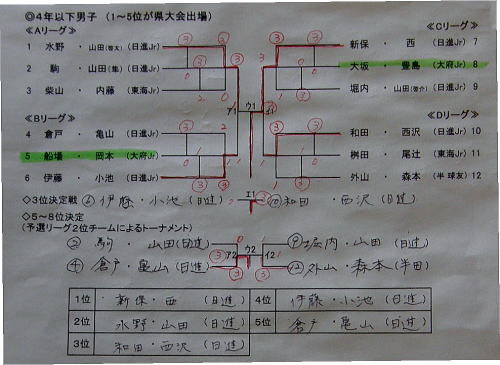 ◎4年以下男子 (1～5位が県大会出場)
≪Aリーグ≫ ≪Cリーグ≫
1 水野・山田(啓太) (日進Jr) 新保・西 (日進Jr) 7
2 駒・山田(隼) (日進Jr) 大坂・豊島 (大府Jr) 8
3 柴山・内藤 (東海Jr) 堀内・山田(啓介) (日進Jr) 9
≪Bリーグ≫ ≪Dリーグ≫
4 倉戸・亀山 (日進Jr) 和田・西沢 (日進Jr) 10
5 船場・岡本 (大府Jr) 桝田・尾辻 (東海Jr) 11
6 伊藤・小池 (日進Jr) 外山・森本 (半 球友) 12
◇3位決定戦 ⑥伊藤・小池(日進) ⑩和田・西沢(日進)
◇5～8位決定
(予選リーグ2位チームによるトーナメント)
②駒・山田(日進) ⑨堀内・山田(日進)
④倉戸・亀山(日進) ⑫外山・森本(半田)
1位 新保・西 (日進) 4位 伊藤・小池(日進)
2位 水野・山田(日進) 5位 倉戸・亀山(日進)
3位 和田・西沢(日進)